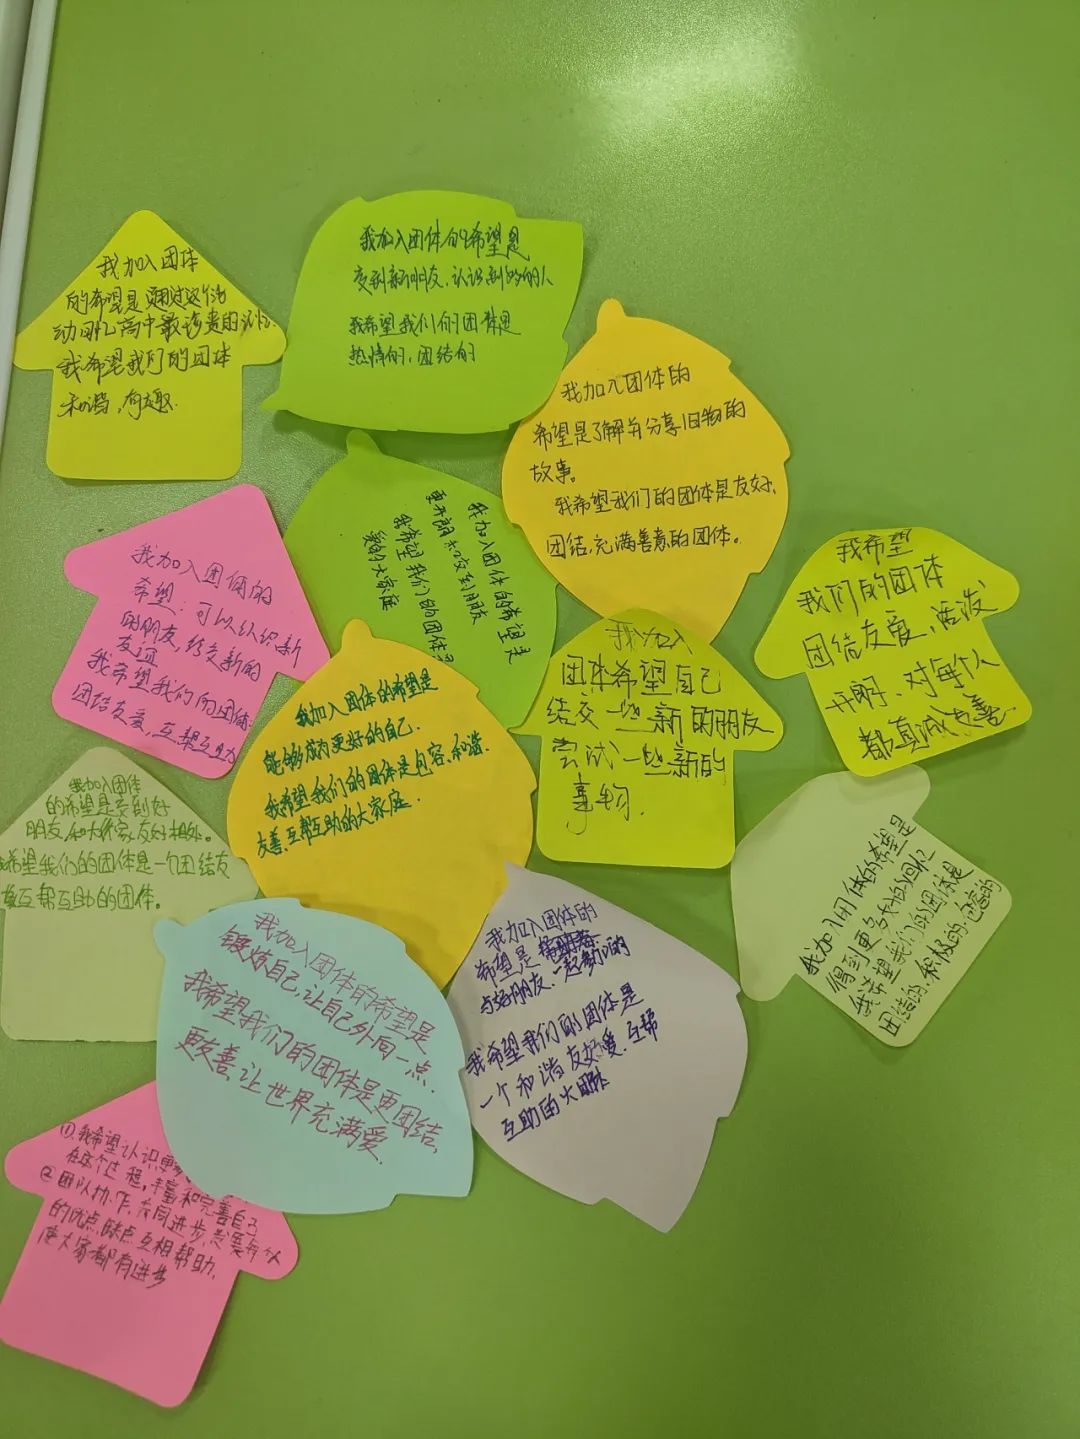 我加入团体
的希望是通过这个活
动回忆高中最珍贵的
我希望我们的团体
和谐，有趣.
我加入团体的希望是
交到新朋友，认识到好的人
我希望我们的团体是
热情的，团结的
我加入团体的
希望是了解并分享旧物的
故事。
我希望我们的团体是友好，
团结，充满善意的团体。
我加入团体的希望是
更开朗和交到朋友
我希望我们的团体是
大家庭
我加入团体的
希望：可以认识新
的朋友，结交新的
友谊
我希望我们的团体：
团结友爱，互帮互助
我希望
我们的团体
团结友爱、活泼
开朗、对每个人
都真诚友善.
我加入
团体希望自己
结交一些新的朋友
尝试一些新的
事物.
我加入团体的希望是
能够成为更好的自己.
我希望我们的团体是包容、和谐、
友善、互帮互助的大家庭.
我加入团体
的希望是交到好
朋友，和大家友好相处。
我希望我们的团体是一个团结友
爱互帮互助的团体。
我加入团体的希望是
得到更多
我希望我们的团体是
团结的、积极的、包容的
我加入团体的希望是
锻炼自己，让自己外向一点.
我希望我们的团体是更团结，
更友善，让世界充满爱.
我加入团体的
希望是
与好朋友，一起
我希望我们的团体是
一个和谐友好爱、互帮
互助的大团体
①.我希望认识更多
在这个过程，丰富和完善自己
②团队协作，共同进步
的优点，缺点互相帮助，
使大家都有进步